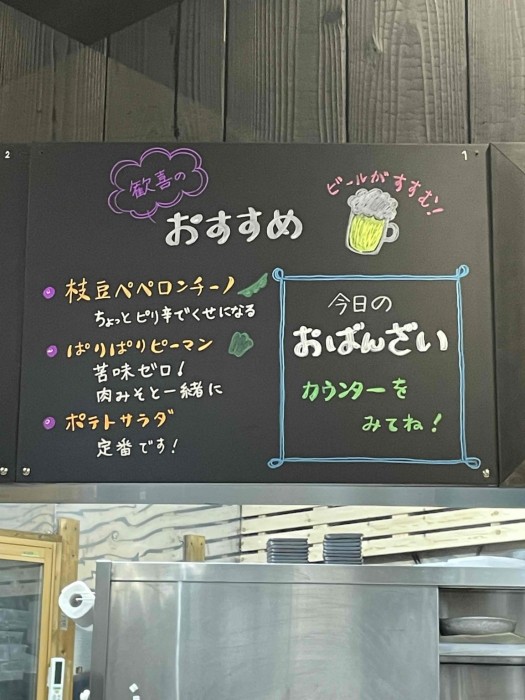 2
1
歓喜の
おすすめ
ビールがすすむ!
枝豆ペペロンチーノ
ちょっとピリ辛でくせになる
ぱりぱりピーマン
苦味ゼロ!
肉みそと一緒に
ポテトサラダ
定番です!
今日の
おばんざい
カウンターを
みてね!